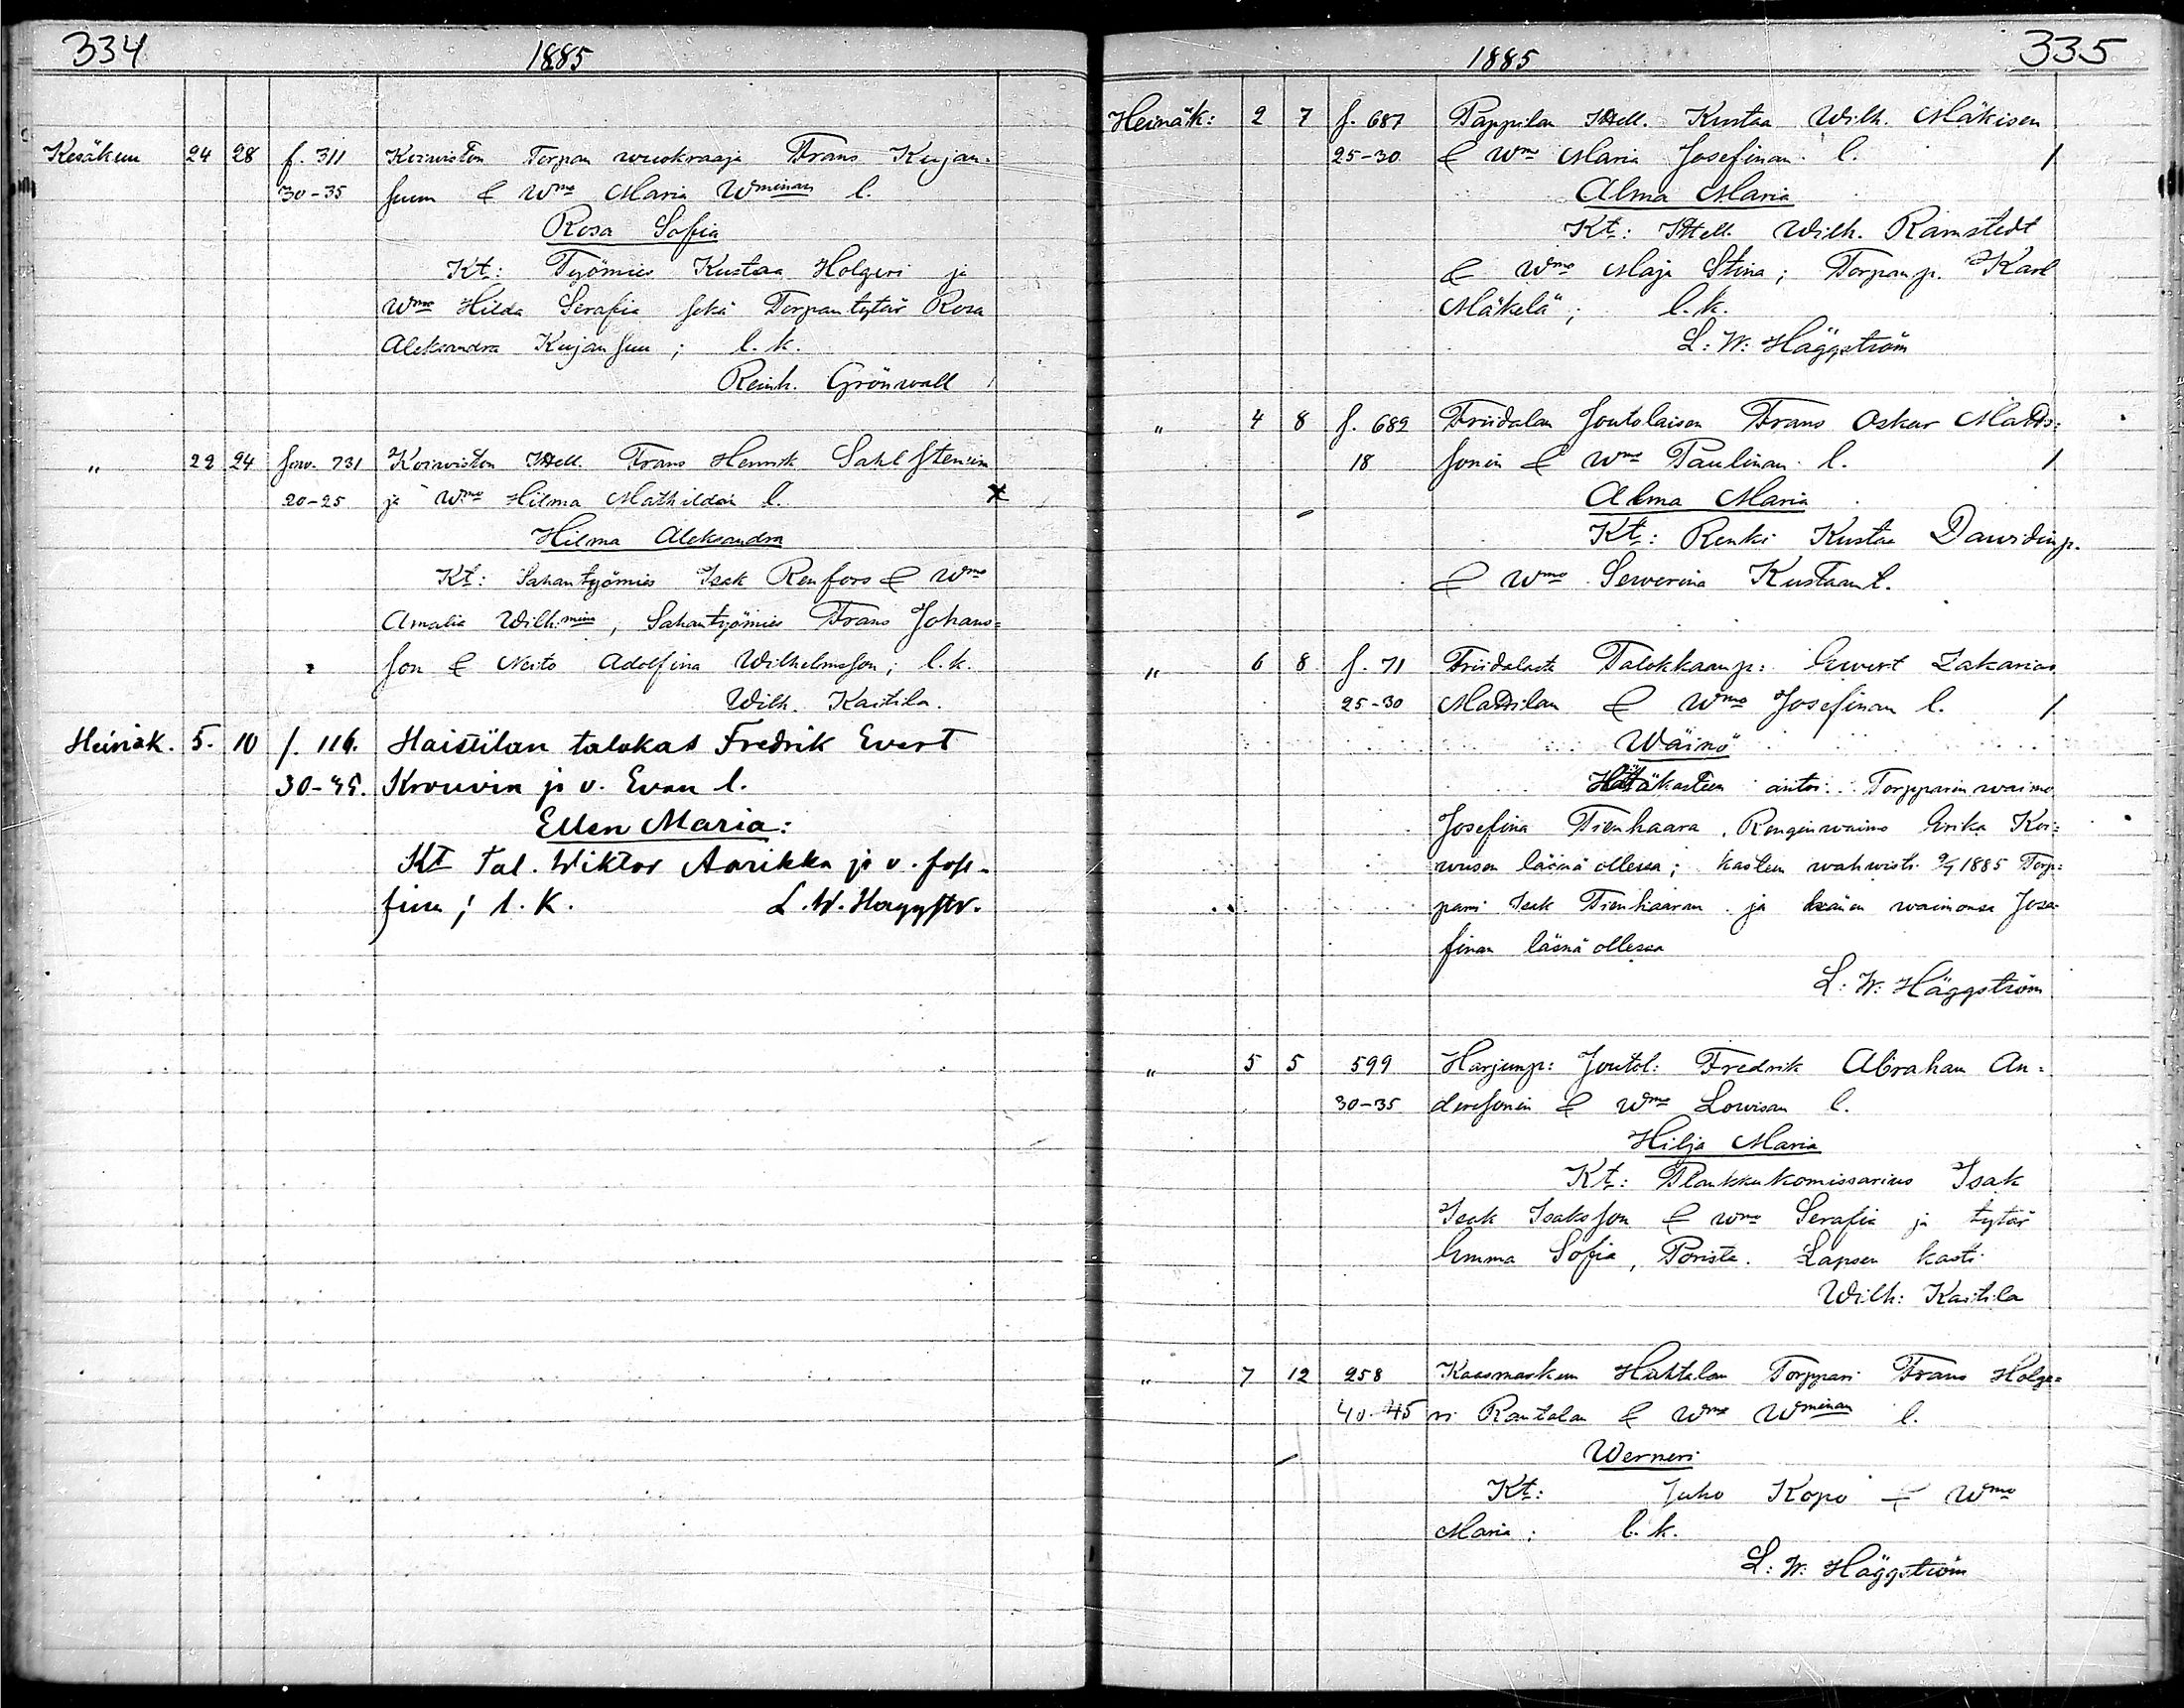 334
1885
Kesäkuu 24 28 f. 311 Koiviston Torpan vuokraaja Frans Kujan-
30-35 suun & Wmo Maria Wminan l.
Rosa Sofia
Kt: Työmies Kustaa Holgeri ja
Wmo Hilda Serafia sekä Torpantytär Rosa
Aleksandra Kujansuu; l. k.
Reinh. Grönwall
" 22 24 731 Koiwiston Frans Henrik Sahlstenin
20-25 ja Wmo Hilma Mathildan l. x
Hilma Aleksandra
Kt: Sahantyömies Isak Renfors & Wmo
Amalia Wilh.mina, Sahantyömies Frans Johans=
son & Neito Adolfina Wilhelmsson; l. k.
Wilh. Kaitila.
Heinäk. 5. 10 f. 116. Haistilan talokas Fredrik Evert
30-35. Krouvin ja v. Evan l.
Ellen Maria:
Kt Tal. Wiktor Aarikka ja v. Jose-
fina; l. K. L. W. Haggstr.
335
1885
Heinäk: 2 7 f. 687 Pappilan Kustaa Wilh. Mäkisen
25-30 & Wmo Maria Josefinan l. /
Alma Maria
Kt: Wilh. Ramstedt
& Wmo Maja Stina; Torpanp. Karl
Mäkelä; l. k.
L: W: Häggström
" 4 8 f. 682 Friidalan Joutolaisen Frans Oskar Matts=
18 sonin & Wmo Paulinan l. /
Alma Maria
Kt: Renki Kustaa Dawidinp.
& Wmo Sewerina Kustaant.
" 6 8 f. 71 Friidalasta Talokkaanp: Ewert Zakarias
25-30 Mattilan & Wmo Josefinan l. /
Wäinö
Hätäkasteen antoi Torpparinwaimo
Josefina Tienhaara, Renginwaimo Erika Koi=
wuson läsnä ollessa; kasteen wahwisti 9/7 1885 Torp=
pari Isak Tienhaaran ja hänen waimonsa Jose-
finan läsnä ollessa
L: W: Häggström
" 5 5 599 Harjunp: Joutol: Fredrik Abraham An=
30-35 dersonin & Wmo Lowisan l.
Hilja Maria
Kt: Plankkukomissarius Isak
Isak Isaksson & Wmo Serafia ja tytär
Emma Sofia, Porista. Lapsen kasti
Wilh: Kaitila
" 7 12 258 Kaasmarkun Hahtolan Torppari Frans Holge=
40-45 ri Rantalan & Wmo Wminan l.
Werneri
Kt: Juho Kopo & Wmo
Maria; l. k.
L: W: Häggström